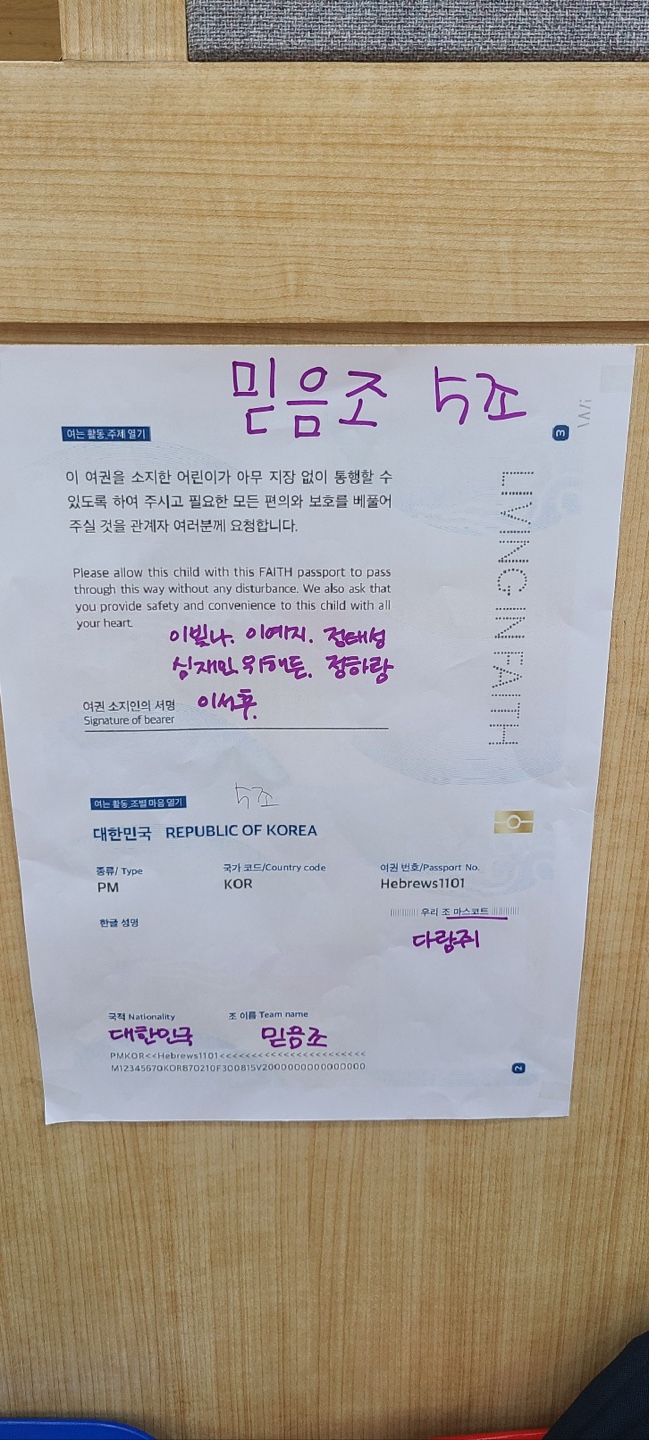 믿음조 5조
여는 활동_주제 열기
3
이 여권을 소지한 어린이가 아무 지장 없이 통행할 수
있도록 하여 주시고 필요한 모든 편의와 보호를 베풀어
주실 것을 관계자 여러분께 요청합니다.
Please allow this child with this FAITH passport to pass
through this way without any disturbance. We also ask that
you provide safety and convenience to this child with all
your heart.
이빛나. 이예지. 정태성
심재민. 위해든. 정하랑
여권 소지인의 서명 이서후.
Signature of bearer
LIVING IN FAITH
여는 활동_조별 마음 열기
5조
대한민국 REPUBLIC OF KOREA
종류/ Type 국가 코드/Country code 여권 번호/Passport No.
PM KOR Hebrews1101
한글 성명 우리 조 마스코트
다람쥐
국적 Nationality 조 이름 Team name
대한민국 믿음조
PMKOR<<Hebrews1101<<<<<<<<<<<<<<<<<<<<<<<<
2